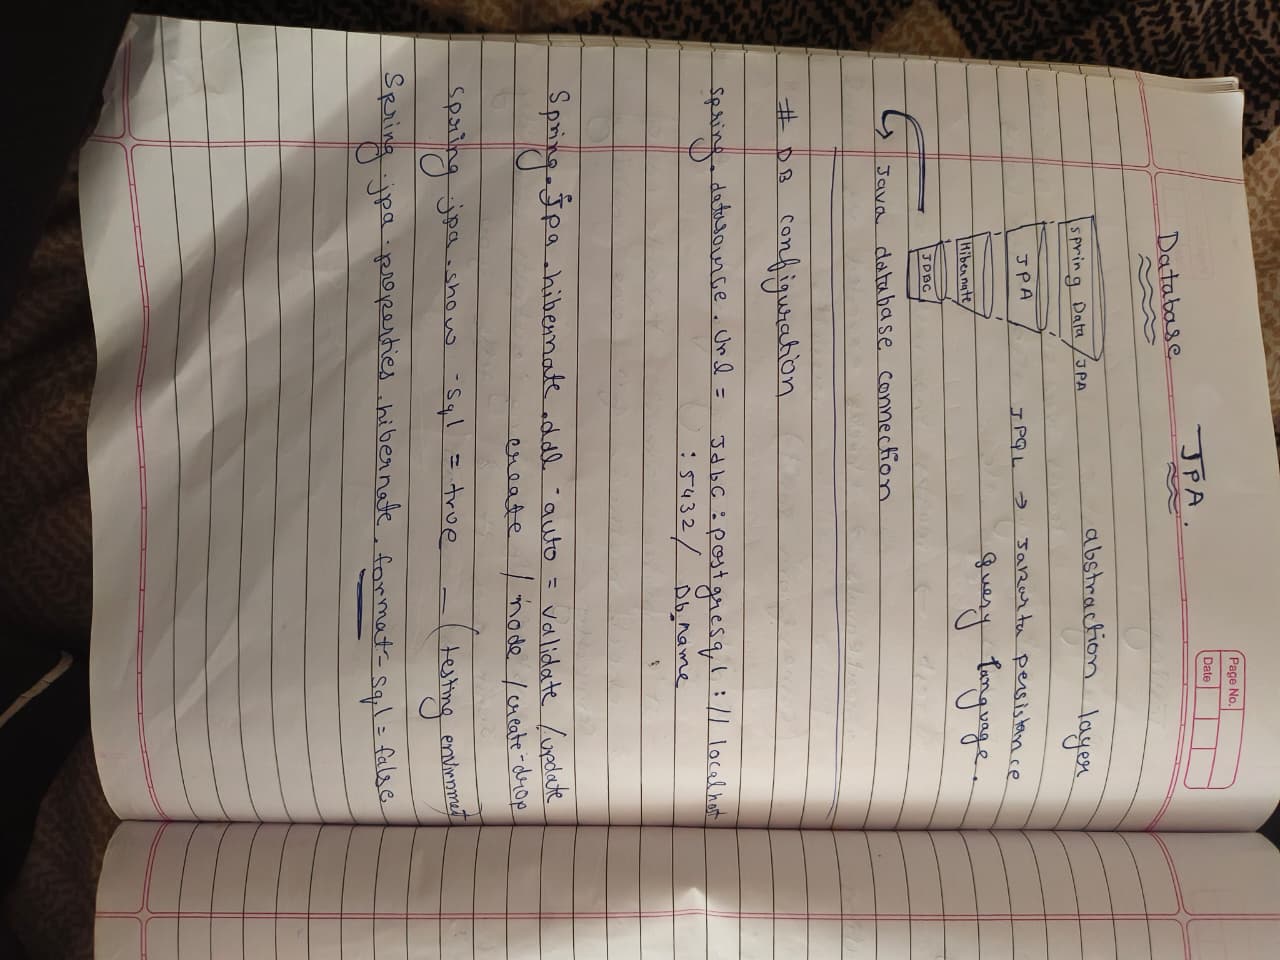 Page No.
Date
JPA.
Database
Spring Data JPA
abstraction layer
JPA
JPQL → Jakarta persistance
query language.
Hibernate
JDBC
↳ Java database connection
# DB configuration
spring.datasource.url = Jdbc:postgresql://localhost
:5432/ Db_name
Spring.Jpa.hibernate.ddl-auto = validate /update
create / node /create-drop
spring.jpa.show-sql = true — (testing envirnment)
Spring.jpa.properties.hibernate.format-sql=false